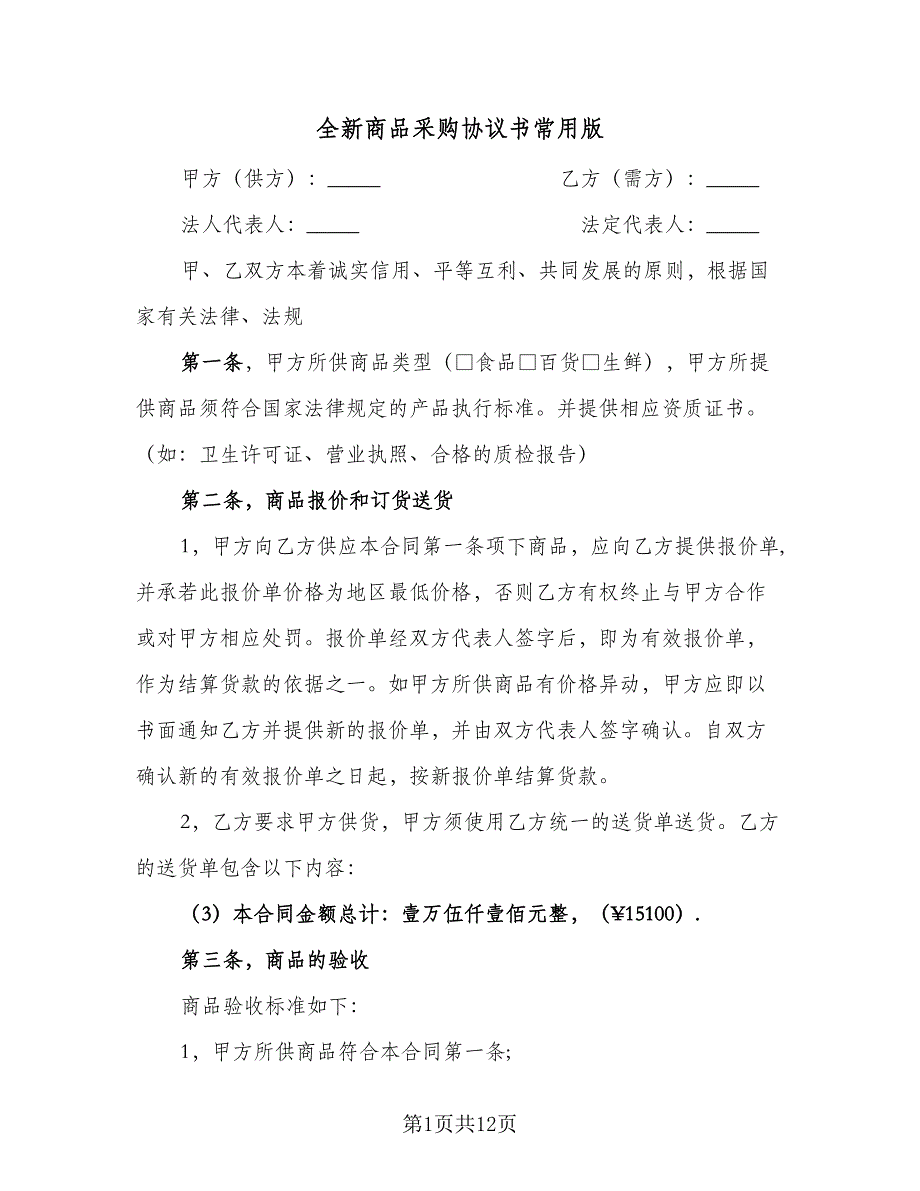 全新商品采购协议书常用版
甲方（供方）：_____ 乙方（需方）：_____
法人代表人：_____ 法定代表人：_____
甲、乙双方本着诚实信用、平等互利、共同发展的原则，根据国
家有关法律、法规
第一条，甲方所供商品类型（□食品□百货□生鲜），甲方所提
供商品须符合国家法律规定的产品执行标准。并提供相应资质证书。
（如：卫生许可证、营业执照、合格的质检报告）
第二条，商品报价和订货送货
1，甲方向乙方供应本合同第一条项下商品，应向乙方提供报价单，
并承若此报价单价格为地区最低价格，否则乙方有权终止与甲方合作
或对甲方相应处罚。报价单经双方代表人签字后，即为有效报价单，
作为结算货款的依据之一。如甲方所供商品有价格异动，甲方应即以
书面通知乙方并提供新的报价单，并由双方代表人签字确认。自双方
确认新的有效报价单之日起，按新报价单结算货款。
2，乙方要求甲方供货，甲方须使用乙方统一的送货单送货。乙方
的送货单包含以下内容：
（3）本合同金额总计：壹万伍仟壹佰元整，（¥15100）.
第三条，商品的验收
商品验收标准如下：
1，甲方所供商品符合本合同第一条;
第1页共12页